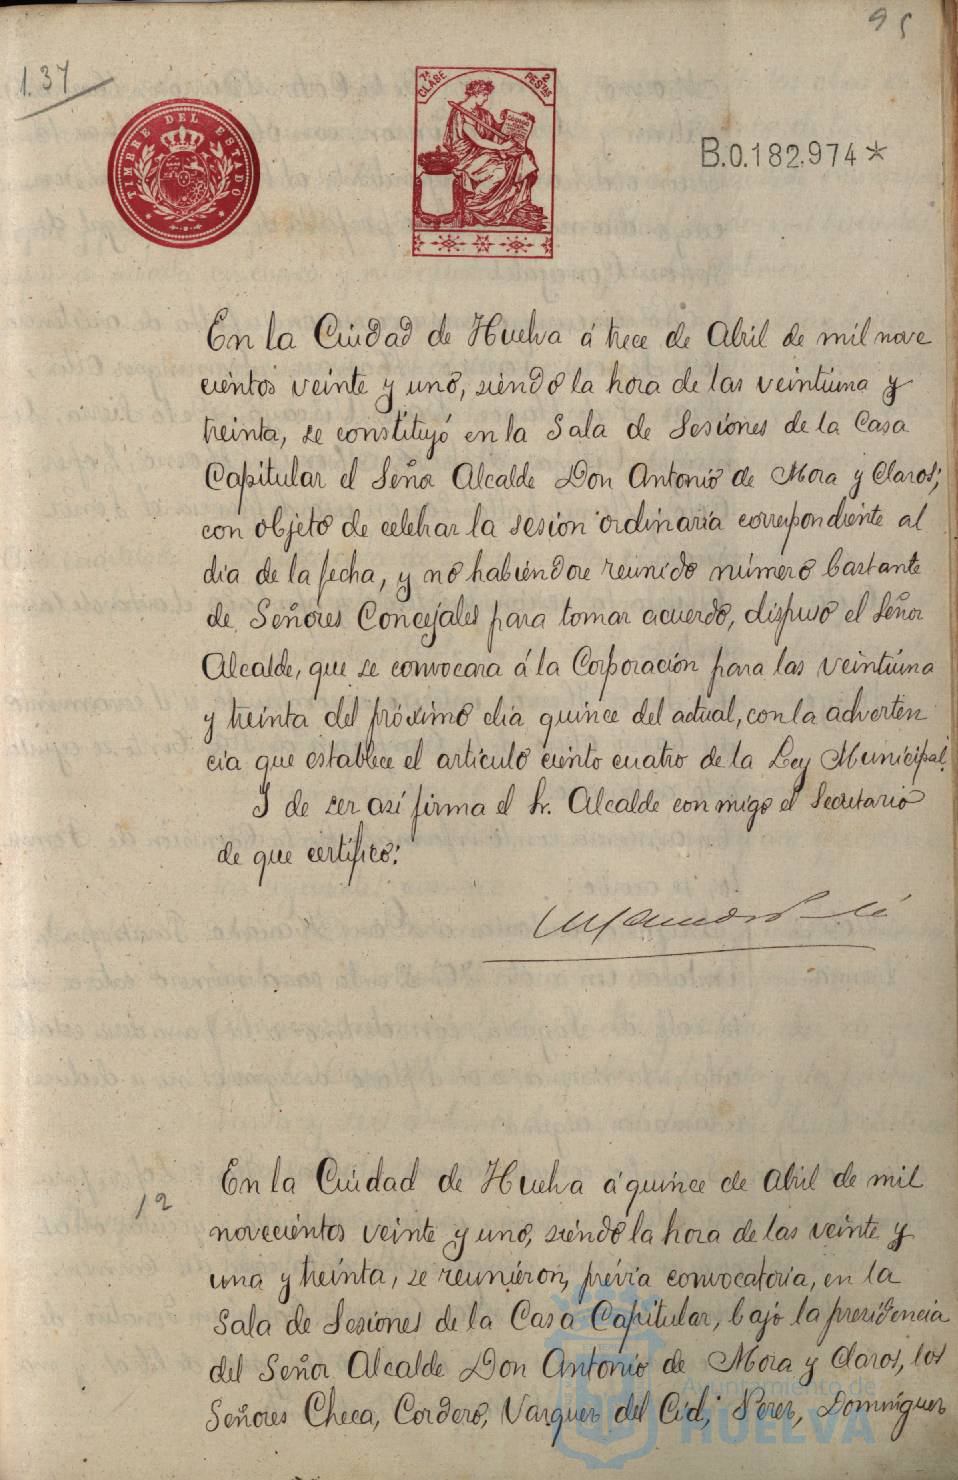 95
137
TIMBRE DEL ESTADO
7ª CLASE
2 PESTAS
B.0.182.974*
En la Ciudad de Huelva á trece de Abril de mil nove
cientos veinte y uno, siendo la hora de las veintiuna y
treinta, se constituyó en la Sala de Sesiones de la Casa
Capitular el Señor Alcalde Don Antonio de Mora y Claros;
con objeto de celebrar la sesion ordinaria correspondiente al
dia de la fecha, y no habiendose reunido número bastante
de Señores Concejales para tomar acuerdo, dispuso el Señor
Alcalde, que se convocara á la Corporación para las veintiuna
y treinta del próximo dia quince del actual, con la adverten
cia que establece el artículo ciento cuatro de la Ley Municipal.
Y de ser así firma el Sr. Alcalde conmigo el Secretario
de que certifico:
12
En la Ciudad de Huelva á quince de Abril de mil
novecientos veinte y uno, siendo la hora de las veinte y
una y treinta, se reunieron, prévia convocatoria, en la
Sala de Sesiones de la Casa Capitular, bajo la presidencia
del Señor Alcalde Don Antonio de Mora y Claros, los
Señores Checa, Cordero, Vazquez del Cid, Perez, Domínguez
Ayuntamiento de
HUELVA